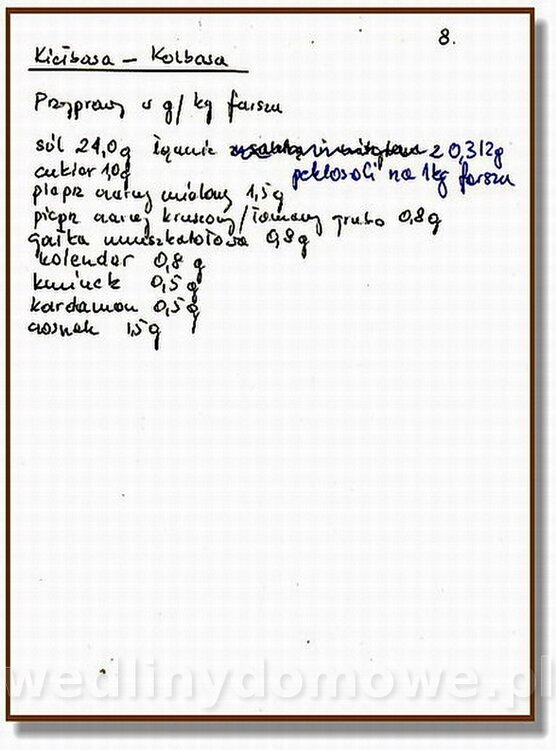 8.
Kiełbasa – Kolbasa
Przyprawy w g/kg farszu
sól 21,0g łącznie z 0,312g
cukier 10g peklosoli na 1kg farszu
pieprz czarny mielony 1,5g
pieprz czarny kruszony/łamany grubo 0,8g
gałka muszkatołowa 0,8g
kolender 0,8 g
kminek 0,5g
kardamon 0,5g
czosnek 1,5g
wedlinydomowe.pl